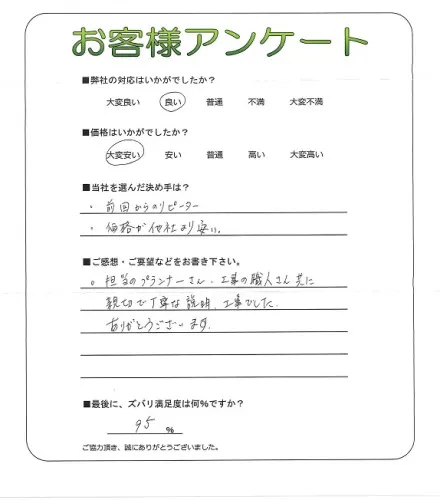 お客様アンケート
■弊社の対応はいかがでしたか？
大変良い 良い 普通 不満 大変不満
■価格はいかがでしたか？
大変安い 安い 普通 高い 大変高い
■当社を選んだ決め手は？
・前回からのリピーター
・価格が他社より安い。
■ご感想・ご要望などをお書き下さい。
。担当のプランナーさん・工事の職人さん共に
親切で丁寧な説明、工事でした。
ありがとうございます。
■最後に、ズバリ満足度は何％ですか？
95 ％
ご協力頂き、誠にありがとうございました。